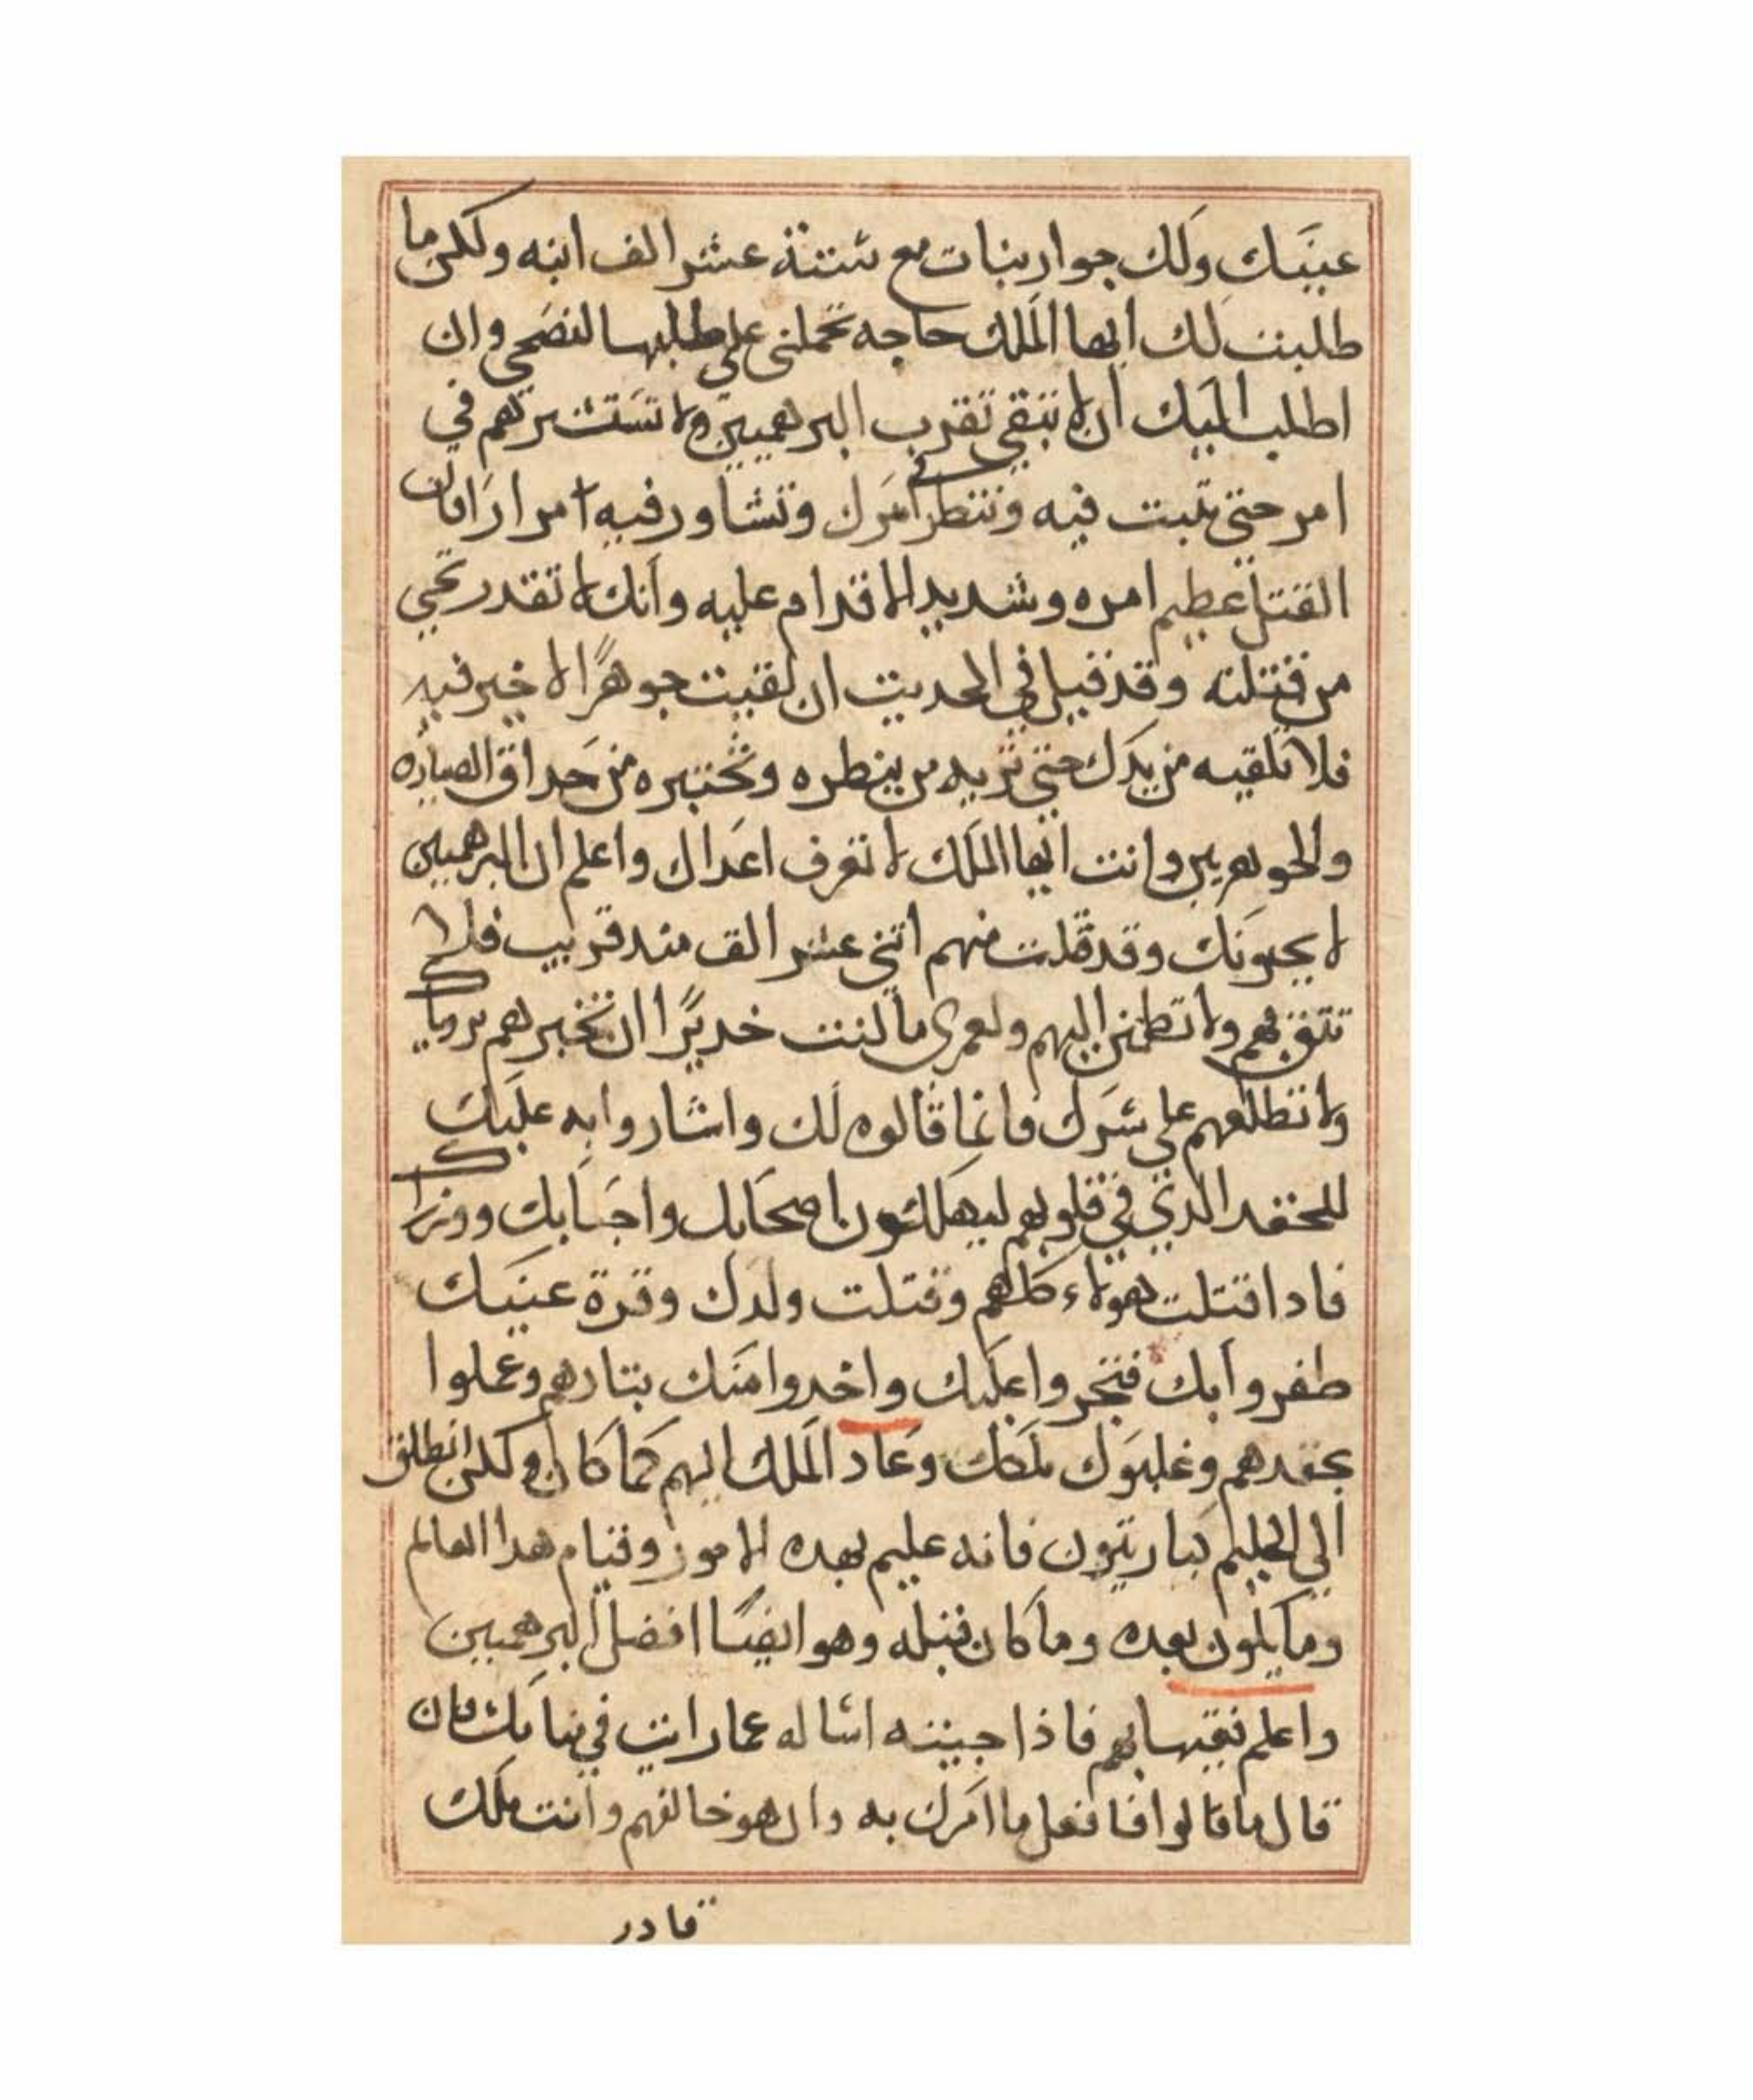 عينيك ولك جوار بنات مع ستة عشر الف ابنه ولكن ما
طلبت لك ايها الملك حاجه تحملني علي طلبها لنصحي وان
اطلب اليك ان لا تبقي تقرب البرهميين ولا تستشيرهم في
امر حتي تتبت فيه وتنتطر في امرك وتشاور فيه امرارا فان
القتل عطيم امره وشديد الاقدام عليه وانك لا تقدر تحيي
من قتلته وقد قيل في الحديت ان لقيت جوهرًا لا خير فيه
فلا تلقيه من يدك حتي تريه من ينطره وتختبره من حداق الصياره
والجوهريين وانت ايها الملك لا تعرف اعداك واعلم ان البرهميين
لا يحبونك وقد قتلت منهم اتني عشر الف مند قريب فلا
تتق بهم ولا تطمئن اليهم ولعمري ما كنت خديرًا ان تخبرهم بروياك
ولا تطلعهم علي سرك فانما قالوه لك واشاروا به عليك
للحقد الدي في قلوبهم ليهلكون اصحابك واحبابك ووزراك
فادا قتلت هولاء كلهم وقتلت ولدك وقرة عينيك
طفروا بك فتجروا عليك واخدوا منك بتارهم وعملوا
بحقدهم وغلبوك ملكك وعاد الملك اليهم كما كان ولكن انطلق
الي الحليم كباريتون فانه عليم بهده الامور وقيام هدا العالم
وما يكون بعده وما كان قبله وهو ايضًا افضل البرهميين
واعلم فقيهايهم فاذا جيته اساله عما رايت في منامك فان
قال ما قالوا فافعل ما امرك به وان هو خالفهم وانت ملك
قادر